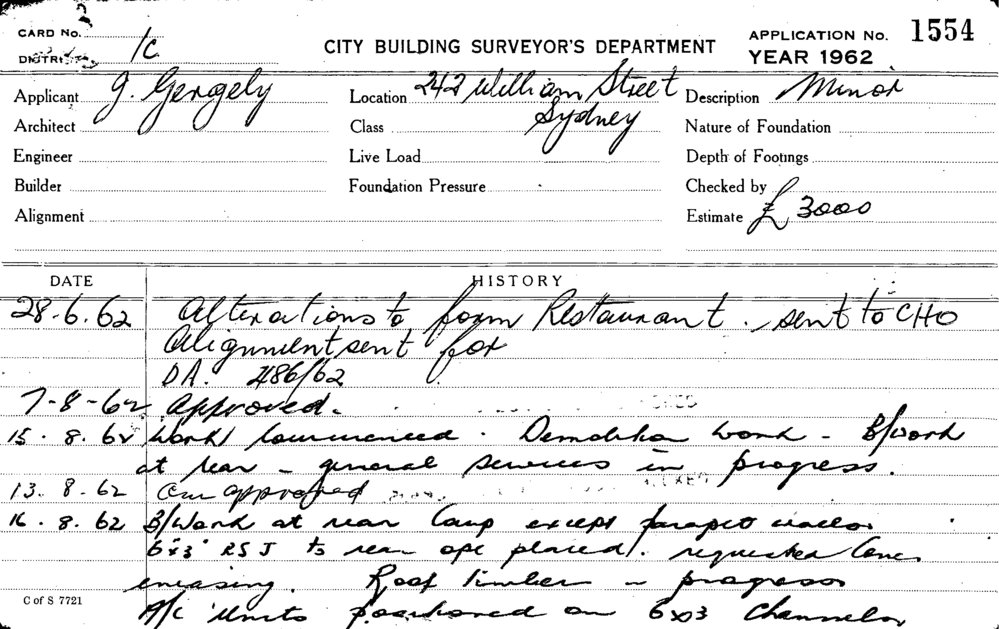 CARD No.
DISTRICT 1c
CITY BUILDING SURVEYOR'S DEPARTMENT
APPLICATION No. 1554
YEAR 1962
Applicant J. Gergely
Location 242 William Street Sydney
Description Minor
Architect
Class
Nature of Foundation
Engineer
Live Load
Depth of Footings
Builder
Foundation Pressure
Checked by
Alignment
Estimate £ 3000
DATE HISTORY
28.6.62 Alterations to form Restaurant. sent to CHO
Alignment sent for
DA. 486/62
7-8-62 Approved.
15.8.62 Work commenced. Demolition work - B/work
at rear - general services in progress.
13.8.62 approved
16.8.62 B/Work at rear Comp except parapet walls
6"x3" RSJ to rear ope placed. requested Conc
encasing. Roof timber in progress
A/C Units positioned on 6x3 Channels
C of S 7721